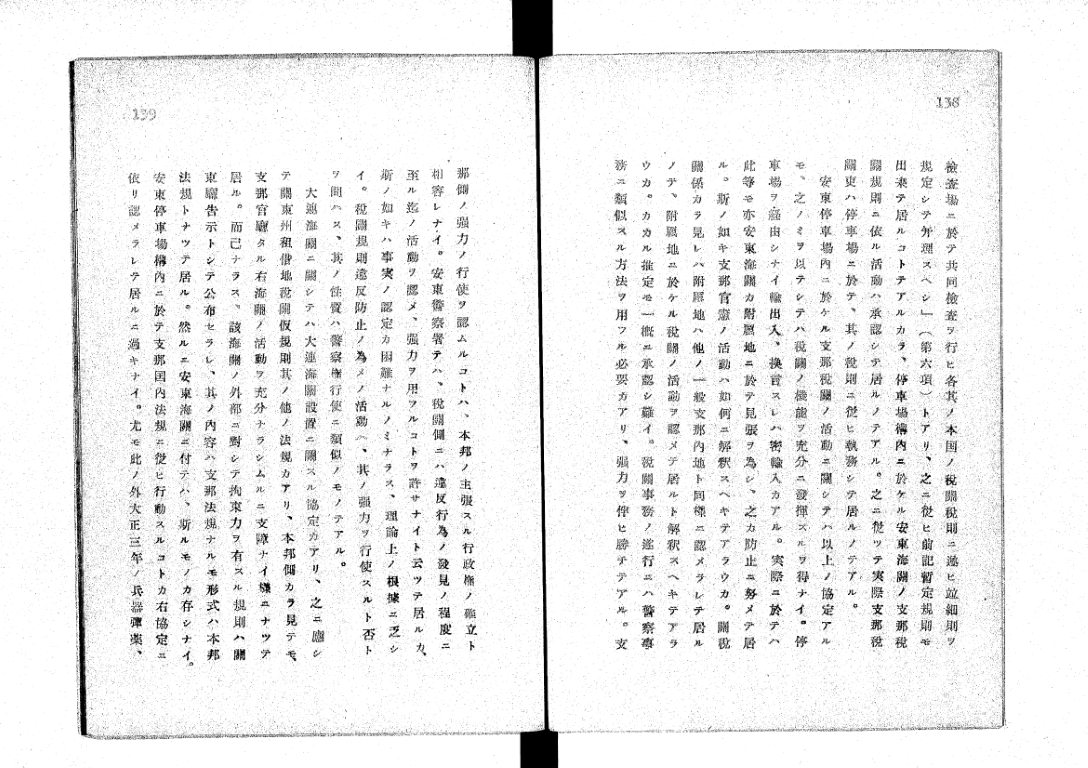 138
檢査場ニ於テ共同檢査ヲ行ヒ各其ノ本国ノ税關税則ニ遵ヒ竝細則ヲ
規定シテ弁理スベシ」(第六項)トアリ、之ニ從ヒ前記暫定規則モ
出来テ居ルコトテアルカラ、停車場構內ニ於ケル安東海關ノ支那税
關規則ニ依ル活動ハ承認シテ居ルノテアル。之ニ從ツテ実際支那税
關吏ハ停車場ニ於テ、其ノ税則ニ從ヒ執務シテ居ルノテアル。
安東停車場內ニ於ケル支那税關ノ活動ニ關シテハ以上ノ協定アル
モ、之ノミヲ以テシテハ税關ノ機能ヲ充分ニ發揮スルヲ得ナイ。停
車場ヲ経由シナイ輸出入、換言スレハ密輸入カアル。実際ニ於テハ
此等モ亦安東海關カ附屬地ニ於テ見張ヲ為シ、之カ防止ニ努メテ居
ル。斯ノ如キ支那官憲ノ活動ハ如何ニ解釈スヘキテアラウカ。關税
關係カラ見レハ附屬地ハ他ノ一般支那內地ト同樣ニ認メラレテ居ル
ノテ、附屬地ニ於ケル税關ノ活動ヲ認メテ居ルト解釈スヘキテアラ
ウカ。カカル推定モ一概ニ承認シ難イ。税關事務ノ遂行ニハ警察事
務ニ類似スル方法ヲ用フル必要カアリ、强力ヲ伴ヒ勝チテアル。支
139
那側ノ强力ノ行使ヲ認ムルコトハ、本邦ノ主張スル行政權ノ確立ト
相容レナイ。安東警察署テハ、税關側ニハ違反行為ノ發見ノ程度ニ
至ル迄ノ活動ヲ認メ、强力ヲ用フルコトヲ許サナイト云ツテ居ルカ、
斯ノ如キハ事実ノ認定カ困難ナルノミナラス、理論上ノ根據ニ乏シ
イ。税關規則違反防止ノ為メノ活動ハ、其ノ强力ヲ行使スルト否ト
ヲ問ハス、其ノ性質ハ警察權行使ニ類似ノモノテアル。
大連海關ニ關シテハ大連海關設置ニ關スル協定カアリ、之ニ應シ
テ關東州租借地税關仮規則其ノ他ノ法規カアリ、本邦側カラ見テモ、
支那官廳タル右海關ノ活動ヲ充分ナラシムルニ支障ナイ樣ニナツテ
居ル。而已ナラス、該海關ノ外部ニ對シテ拘束力ヲ有スル規則ハ關
東廳告示トシテ公布セラレ、其ノ內容ハ支那法規ナルモ形式ハ本邦
法規トナツテ居ル。然ルニ安東海關ニ付テハ、斯ルモノカ存シナイ。
安東停車場構內ニ於テ支那国內法規ニ從ヒ行動スルコトカ右協定ニ
依リ認メラレテ居ルニ過キナイ。尤モ此ノ外大正三年ノ兵器彈藥、